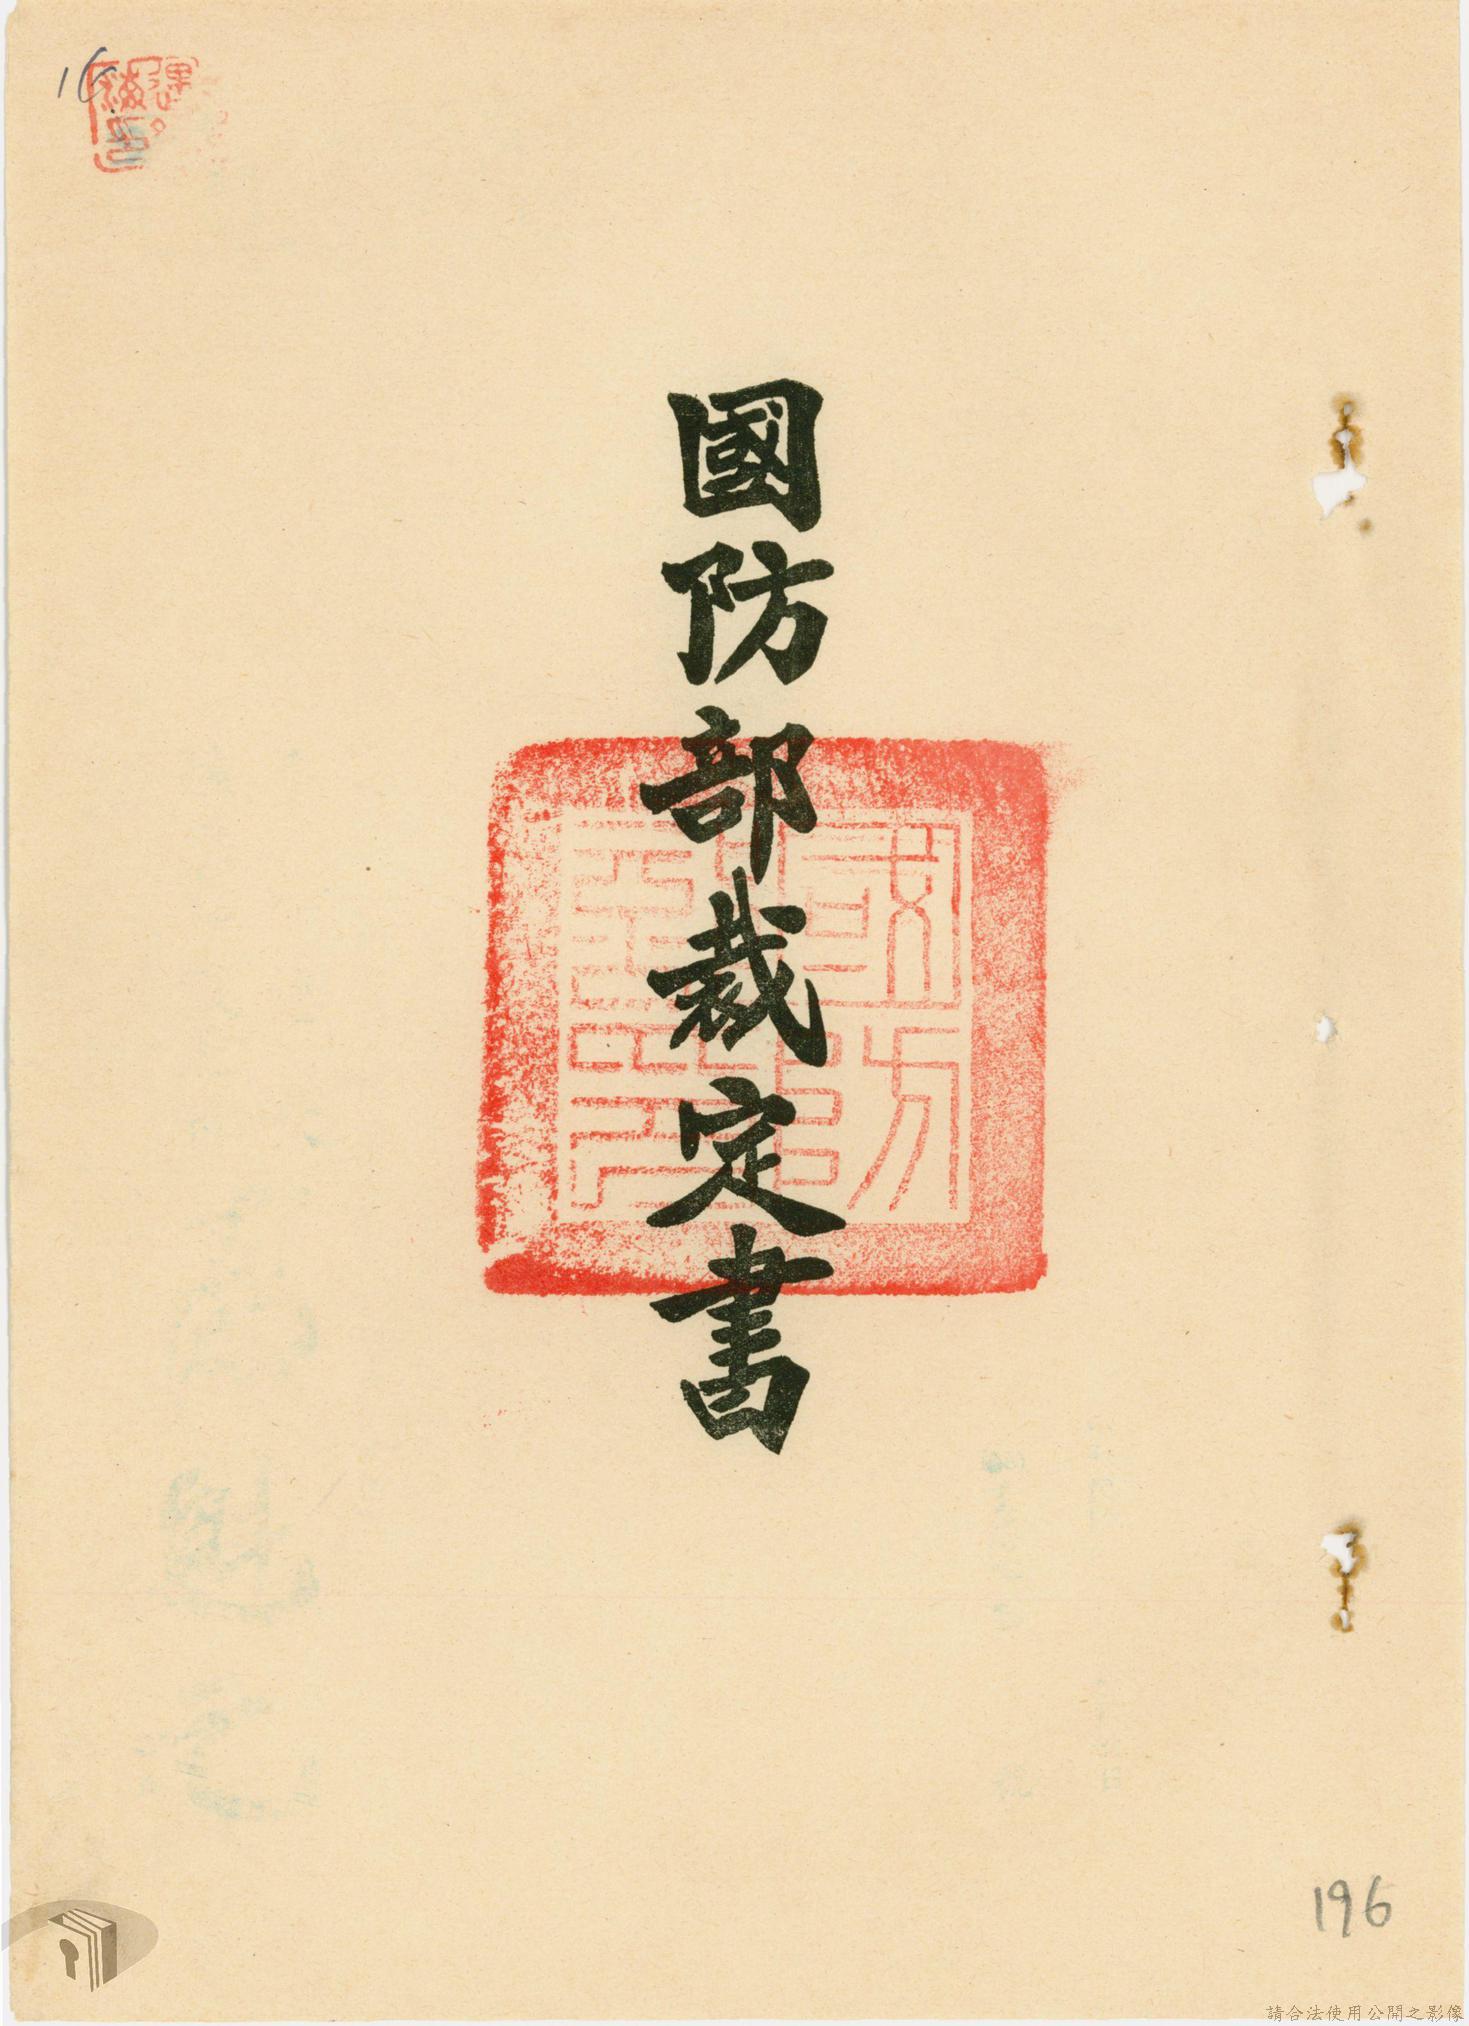 16
國防部裁定書
196
請合法使用公開之影像